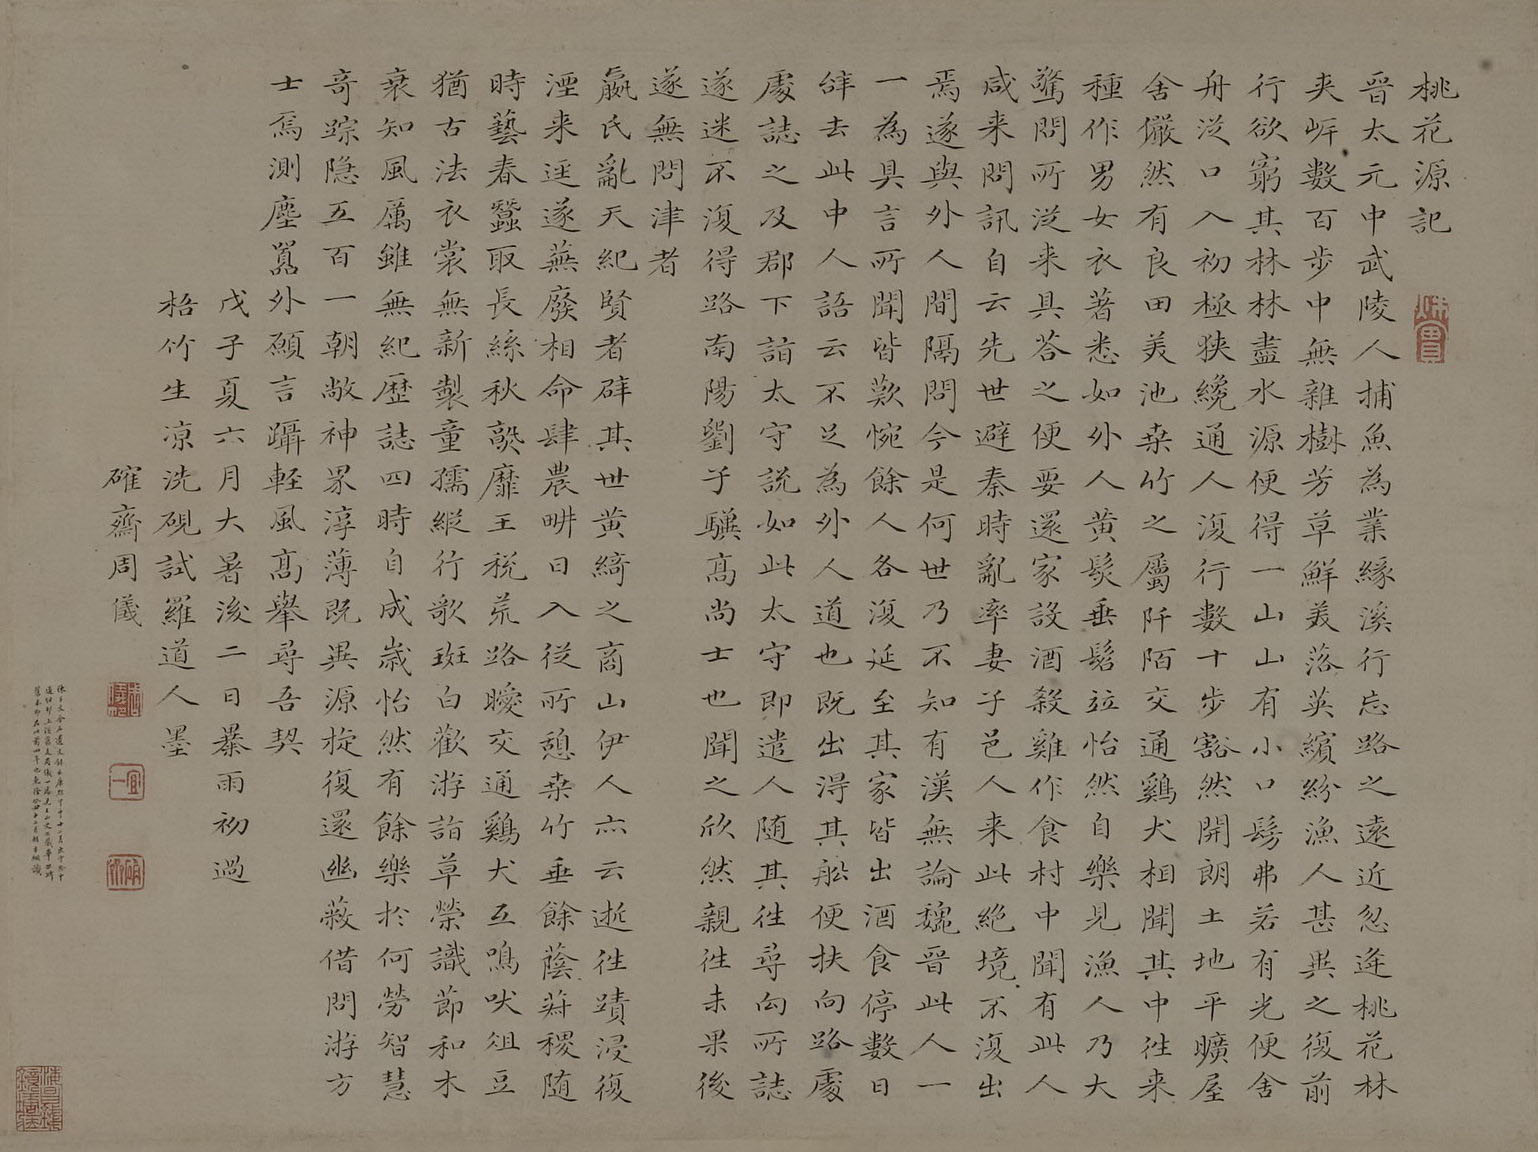 桃花源記
晉太元中武陵人捕魚為業緣溪行忘路之遠近忽逢桃花林
夾岸數百步中無雜樹芳草鮮美落英繽紛漁人甚異之復前
行欲窮其林林盡水源便得一山山有小口髣弗若有光便舍
舟從口入初極狹纔通人復行數十步豁然開朗土地平曠屋
舍儼然有良田美池桒竹之屬阡陌交通鷄犬相聞其中往来
種作男女衣著悉如外人黄髮垂髫竝怡然自樂見漁人乃大
驚問所從来具荅之便要還家設酒殺雞作食村中聞有此人
咸来問訊自云先世避秦時亂率妻子邑人来此絕境不復出
焉遂與外人間隔問今是何世乃不知有漢無論魏晉此人一
一為具言所聞皆歎惋餘人各復延至其家皆出酒食停數日
辝去此中人語云不足為外人道也既出得其船便扶向路處
處誌之及郡下詣太守說如此太守即遣人随其往尋向所誌
遂迷不復得路南陽劉子驥高尚士也聞之欣然親往未果後
遂無問津者
嬴氏亂天紀賢者辟其世黄綺之商山伊人亦云逝往蹟浸復
湮来逕遂蕪廢相命肆農畊日入從所憩桒竹垂餘蔭菽稷随
時藝春蠶取長絲秋熟靡王税荒路曖交通鷄犬互鳴吠俎豆
猶古法衣裳無新製童孺縱行歌斑白歡游詣草榮識節和木
衰知風厲雖無紀歷誌四時自成歲怡然有餘樂於何勞智慧
竒踪隐五百一朝敞神界淳薄既異源旋復還幽蔽借問游方
士焉測塵嚣外願言躡軽風高舉尋吾契
戊子夏六月大暑後二日暴雨初過
梧竹生凉洗硯試羅道人墨
確齋周儀